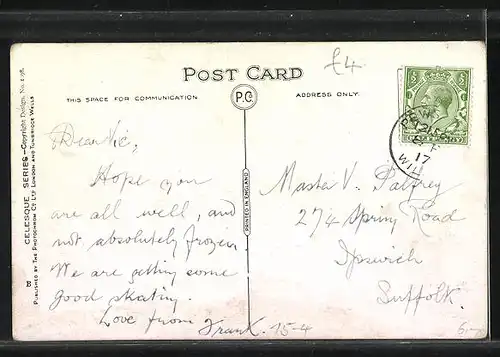 £4
POST CARD
THIS SPACE FOR COMMUNICATION.
P.C.
ADDRESS ONLY.
CELESQUE SERIES—Copyright Design, No.
PUBLISHED BY THE PHOTOCHROM CO LTD LONDON AND TUNBRIDGE WELLS
PRINTED IN ENGLAND
PEWSEY
17
WILTS
Dear Vic,
Hope you
are all well, and
not absolutely frozen.
We are getting some
good skating.
Love from Frank.
Master V. Palfrey
274 Spring Road
Ipswich
Suffolk.
15-4